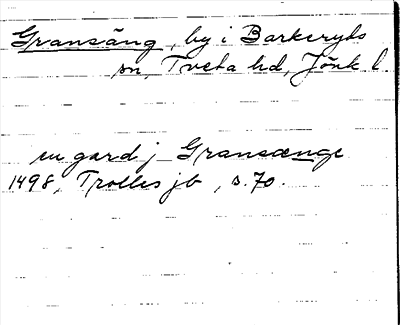 Gransäng, by i Barkeryds
sn, Tveta hd, Jönk l.
en gard j Gransænge
1498, Trolles jb, s. 70.